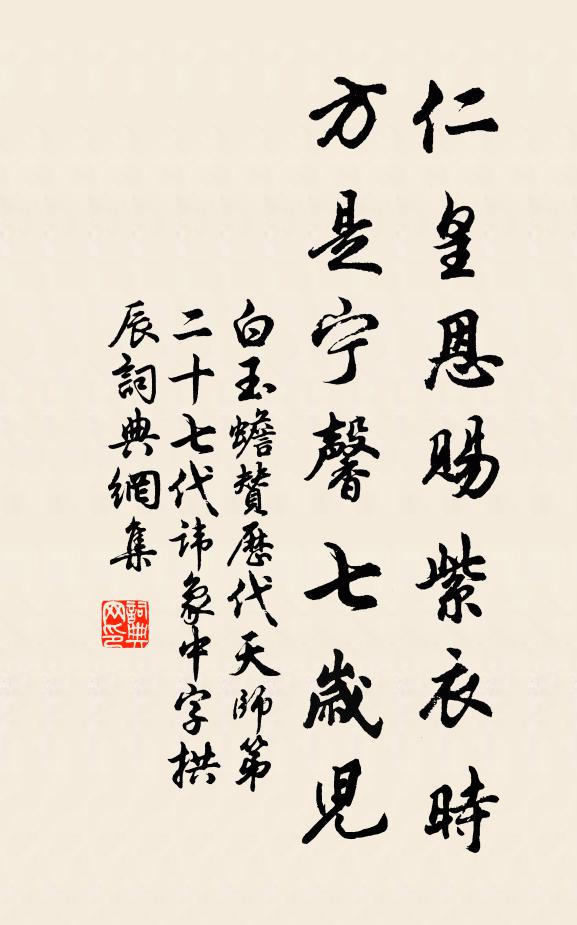 仁皇恩賜紫衣時
方是宁馨七歲児
白玉蟾贊歷代天師第
二十七代諱象中字拱
辰詞典網集
詞典网印